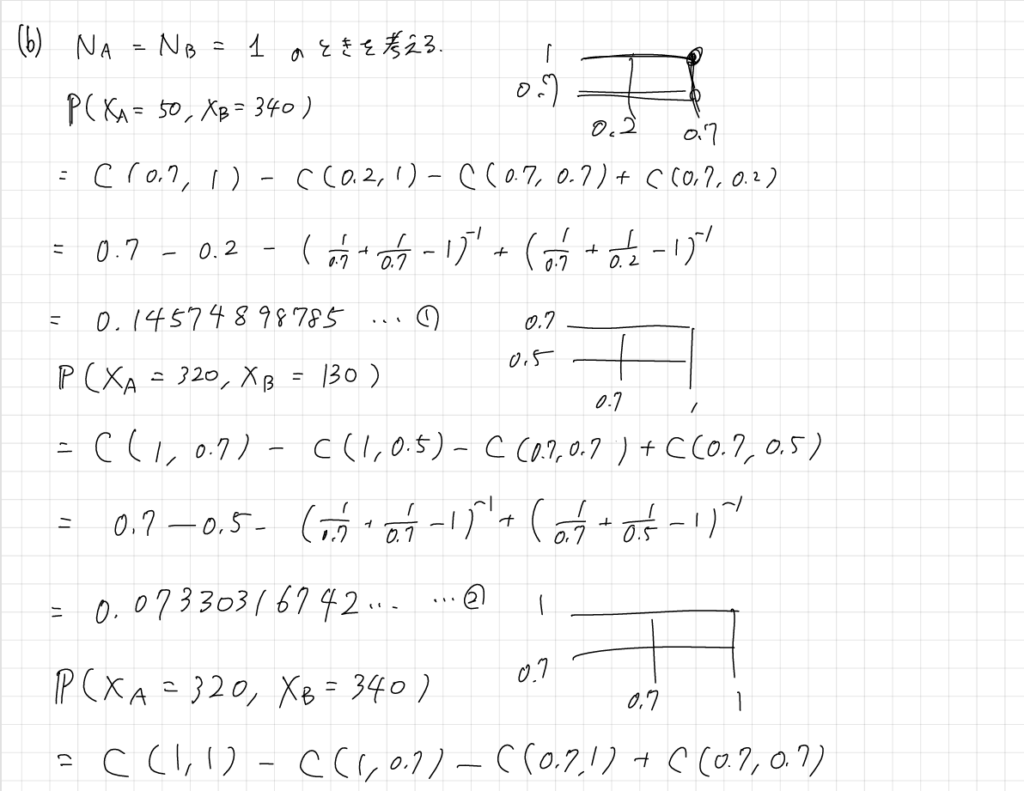 (b) NA = NB = 1 のときを考える.
P(XA = 50, XB = 340)
1
0.7
0.2 0.7
= C(0.7, 1) - C(0.2, 1) - C(0.7, 0.7) + C(0.7, 0.2)
= 0.7 - 0.2 - (1/0.7 + 1/0.7 - 1)^-1 + (1/0.7 + 1/0.2 - 1)^-1
= 0.14574898785 ... ①
0.7
0.5
0.7 1
P(XA = 320, XB = 130)
= C(1, 0.7) - C(1, 0.5) - C(0.7, 0.7) + C(0.7, 0.5)
= 0.7 - 0.5 - (1/0.7 + 1/0.7 - 1)^-1 + (1/0.7 + 1/0.5 - 1)^-1
= 0.07330316742... ...②
1
0.7
0.7 1
P(XA = 320, XB = 340)
= C(1, 1) - C(1, 0.7) - C(0.7, 1) + C(0.7, 0.7)